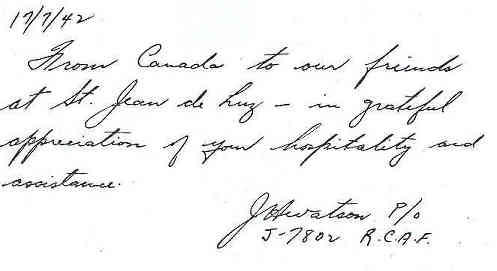 17/7/42
From Canada to our friends
at St. Jean de Luz – in grateful
appreciation of your hospitality and
assistance.
JHWatson P/O
J-7802 R.C.A.F.